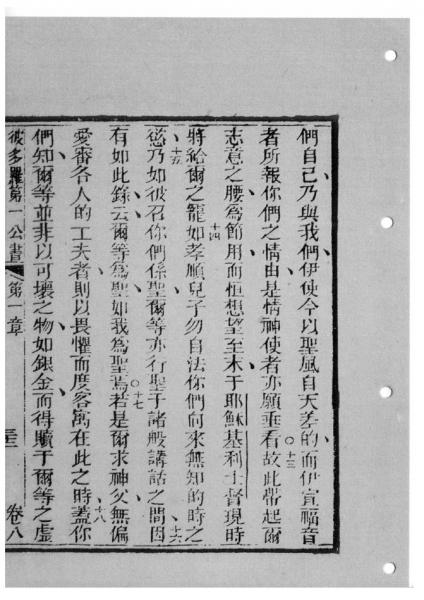 們自己乃與我們伊使今以聖風自天差的而伊宣福音
者所報你們之情由是情神使者亦願垂看故此帶起爾 十三
志意之腰為節用而恒想望至末于耶穌基利士督現時
將給爾之寵如孝順兒子勿自法你們向來無知的時之 十四
慾乃如彼召你們係聖爾等亦行聖于諸般講話之間因 十五 十六
有如此錄云爾等為聖如我為聖焉若是爾求神父無偏 十七
愛審各人的工夫者則以畏懼而度客寓在此之時蓋你 十八
們知爾等並非以可壞之物如銀金而得贖于爾等之虛
彼多羅第一公書 第一章 三 卷八